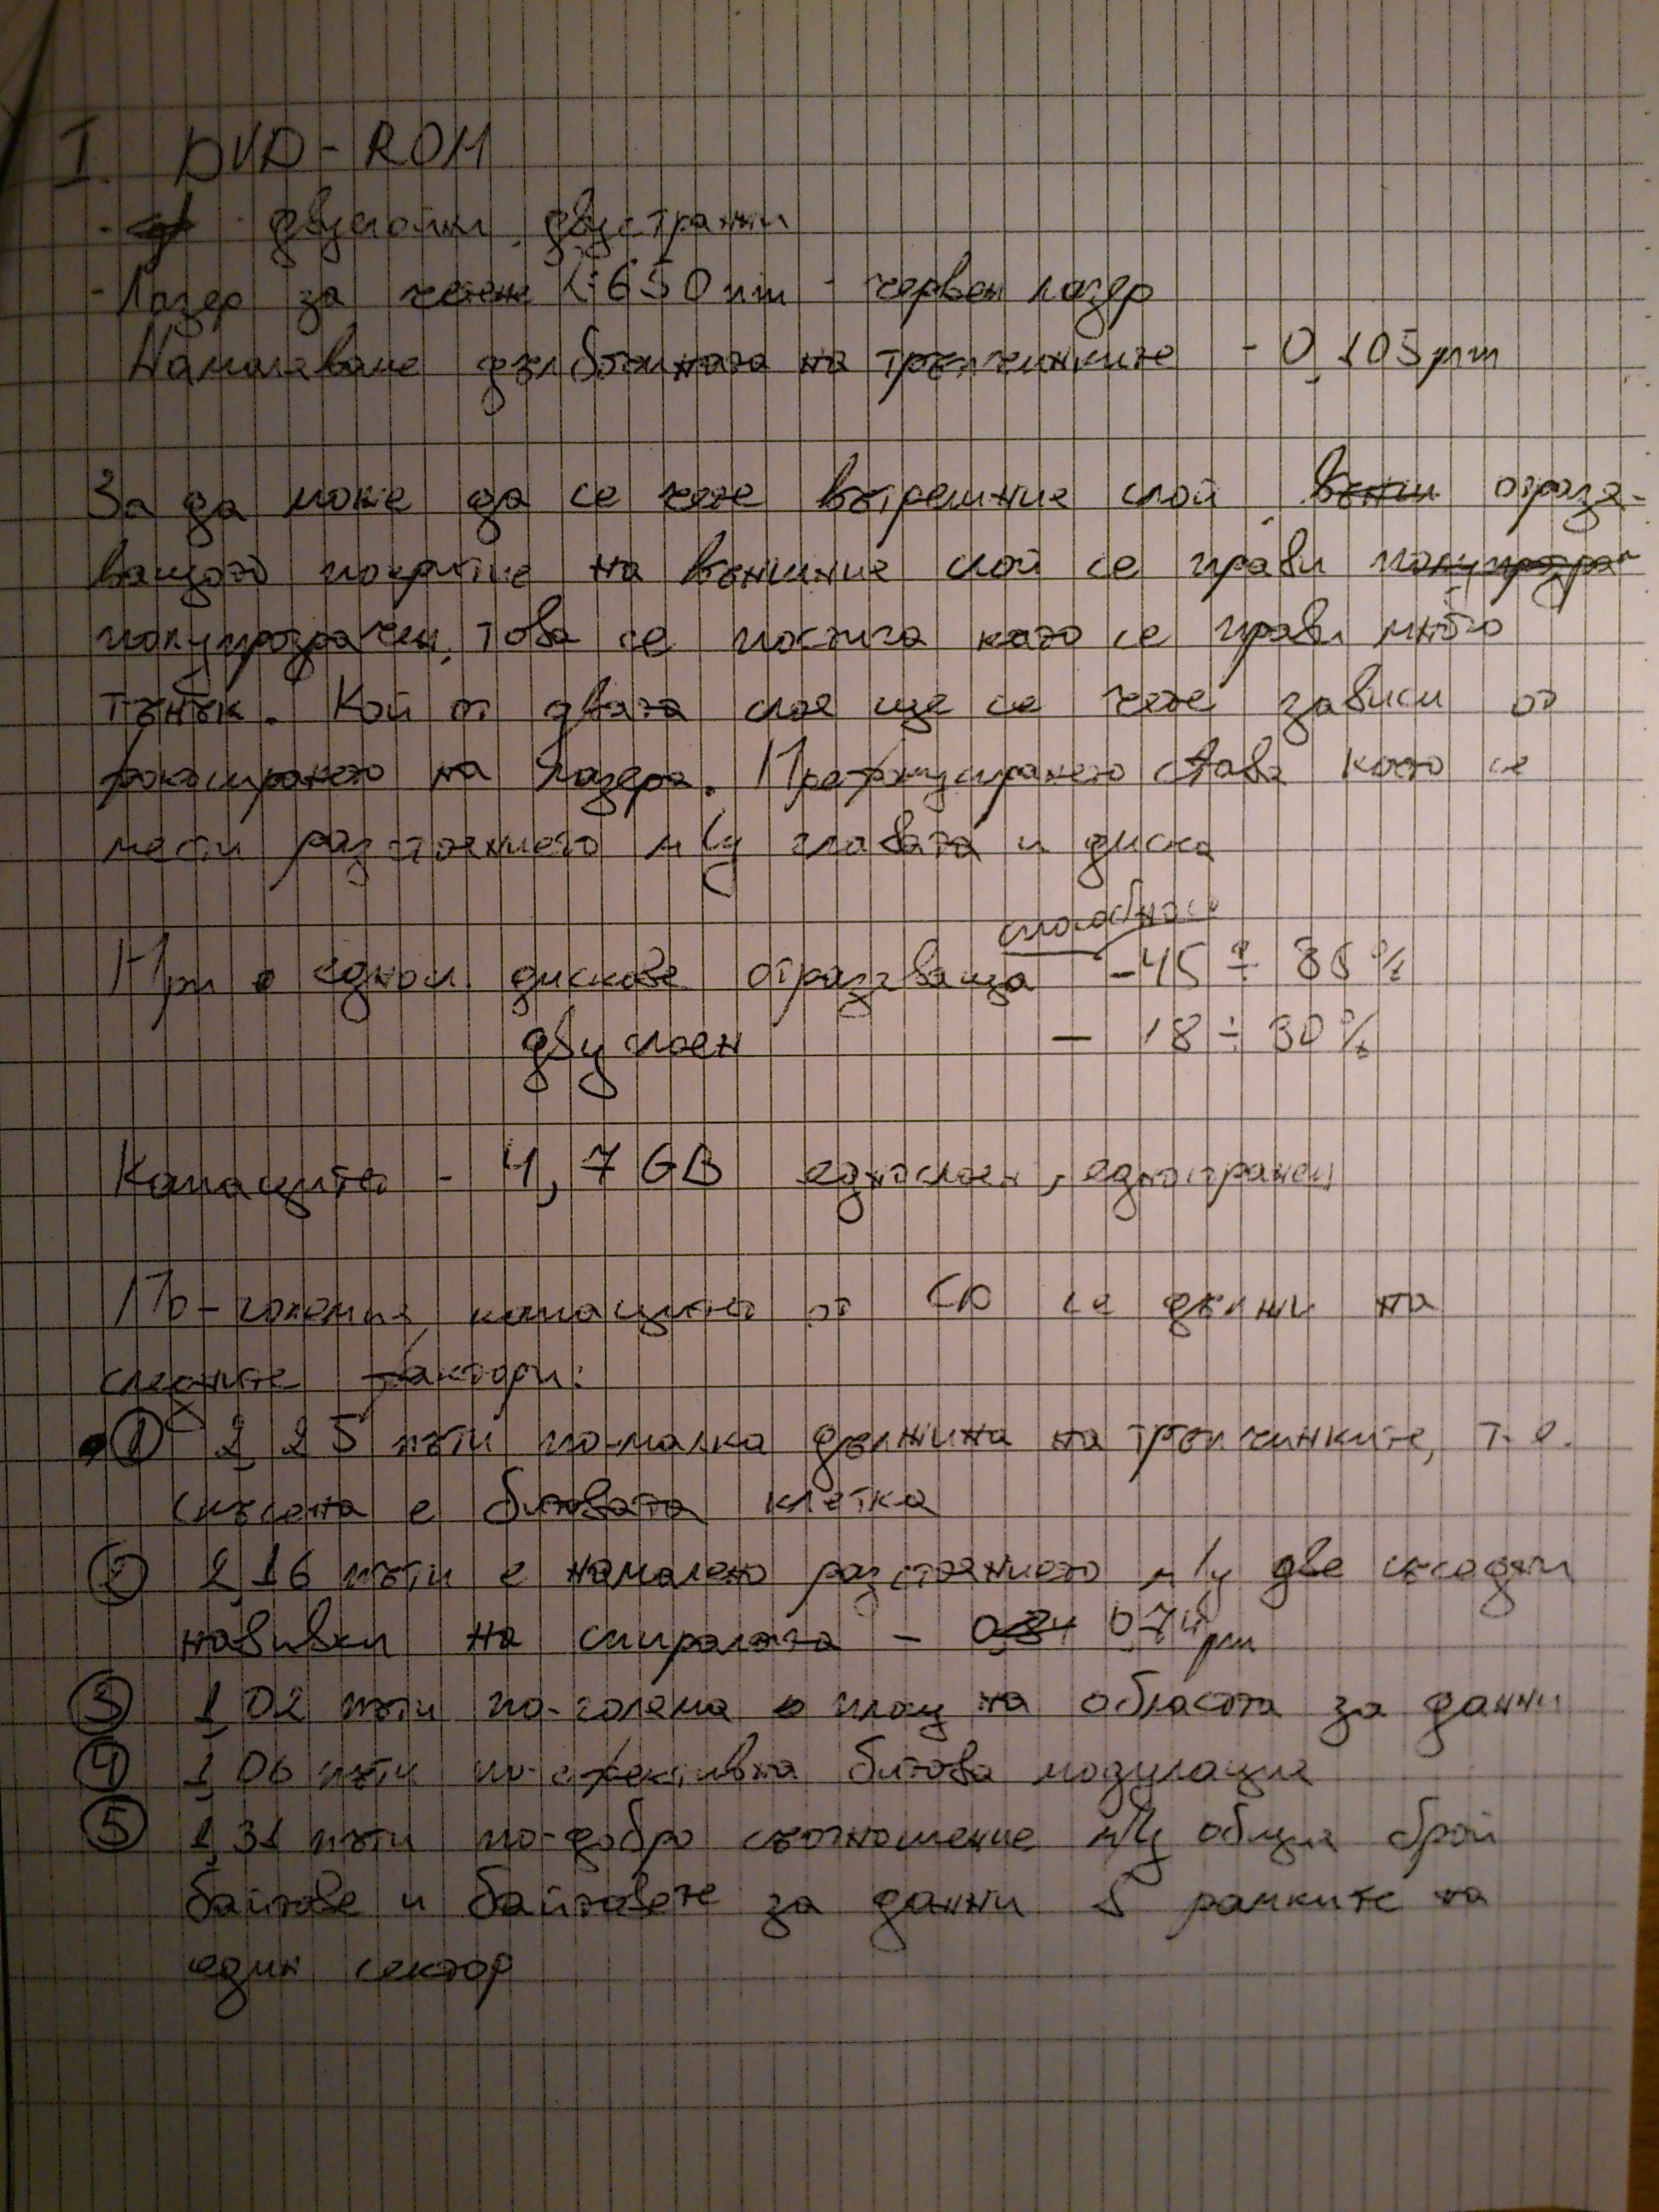 I. DVD-ROM
- двуслойни, двустранни
- Лазер за четене λ=650nm - червен лазер
Намаляване дълбочината на тръпчинките - 0,105µm
За да може да се чете вътрешние слой, външ отразя-
ващото покритие на външние слой се прави полупрозра
полупрозрачен, това се постига като се прави много
тънък. Кой от двата слоя ще се чете зависи от
фокосирането на лазера. Префокусирането става като се
мести разстоянието м/у главата и диска
способност
При еднол. дискове отразяваща - 45 ÷ 85%
двуслоен — 18 ÷ 30%
Капацитет - 4,7 GB еднослоен, едностранен
По-големия капацитет от CD се дължи на
следните фактори:
① 2,25 пъти по-малка дължина на тръпчинките, т.е.
скъсена е битовата клетка
② 2,16 пъти е намалено разстоянието м/у две съседни
навивки на спиралата - 0,84 0,74µm
③ 1,02 пъти по-голяма е площ на областа за данни
④ 1,06 пъти по-ефективна битова модулация
⑤ 1,31 пъти по-добро съотношение м/у общия брой
байтове и байтовете за данни в рамките на
един сектор